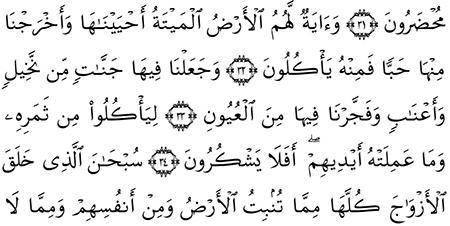 مُحْضَرُونَ ٣١ وَءَايَةٌ لَّهُمُ ٱلْأَرْضُ ٱلْمَيْتَةُ أَحْيَيْنَٰهَا وَأَخْرَجْنَا
مِنْهَا حَبًّا فَمِنْهُ يَأْكُلُونَ ٣٢ وَجَعَلْنَا فِيهَا جَنَّٰتٍ مِّن نَّخِيلٍ
وَأَعْنَٰبٍ وَفَجَّرْنَا فِيهَا مِنَ ٱلْعُيُونِ ٣٣ لِيَأْكُلُوا۟ مِن ثَمَرِهِۦ
وَمَا عَمِلَتْهُ أَيْدِيهِمْ ۖ أَفَلَا يَشْكُرُونَ ٣٤ سُبْحَٰنَ ٱلَّذِى خَلَقَ
ٱلْأَزْوَٰجَ كُلَّهَا مِمَّا تُنۢبِتُ ٱلْأَرْضُ وَمِنْ أَنفُسِهِمْ وَمِمَّا لَا